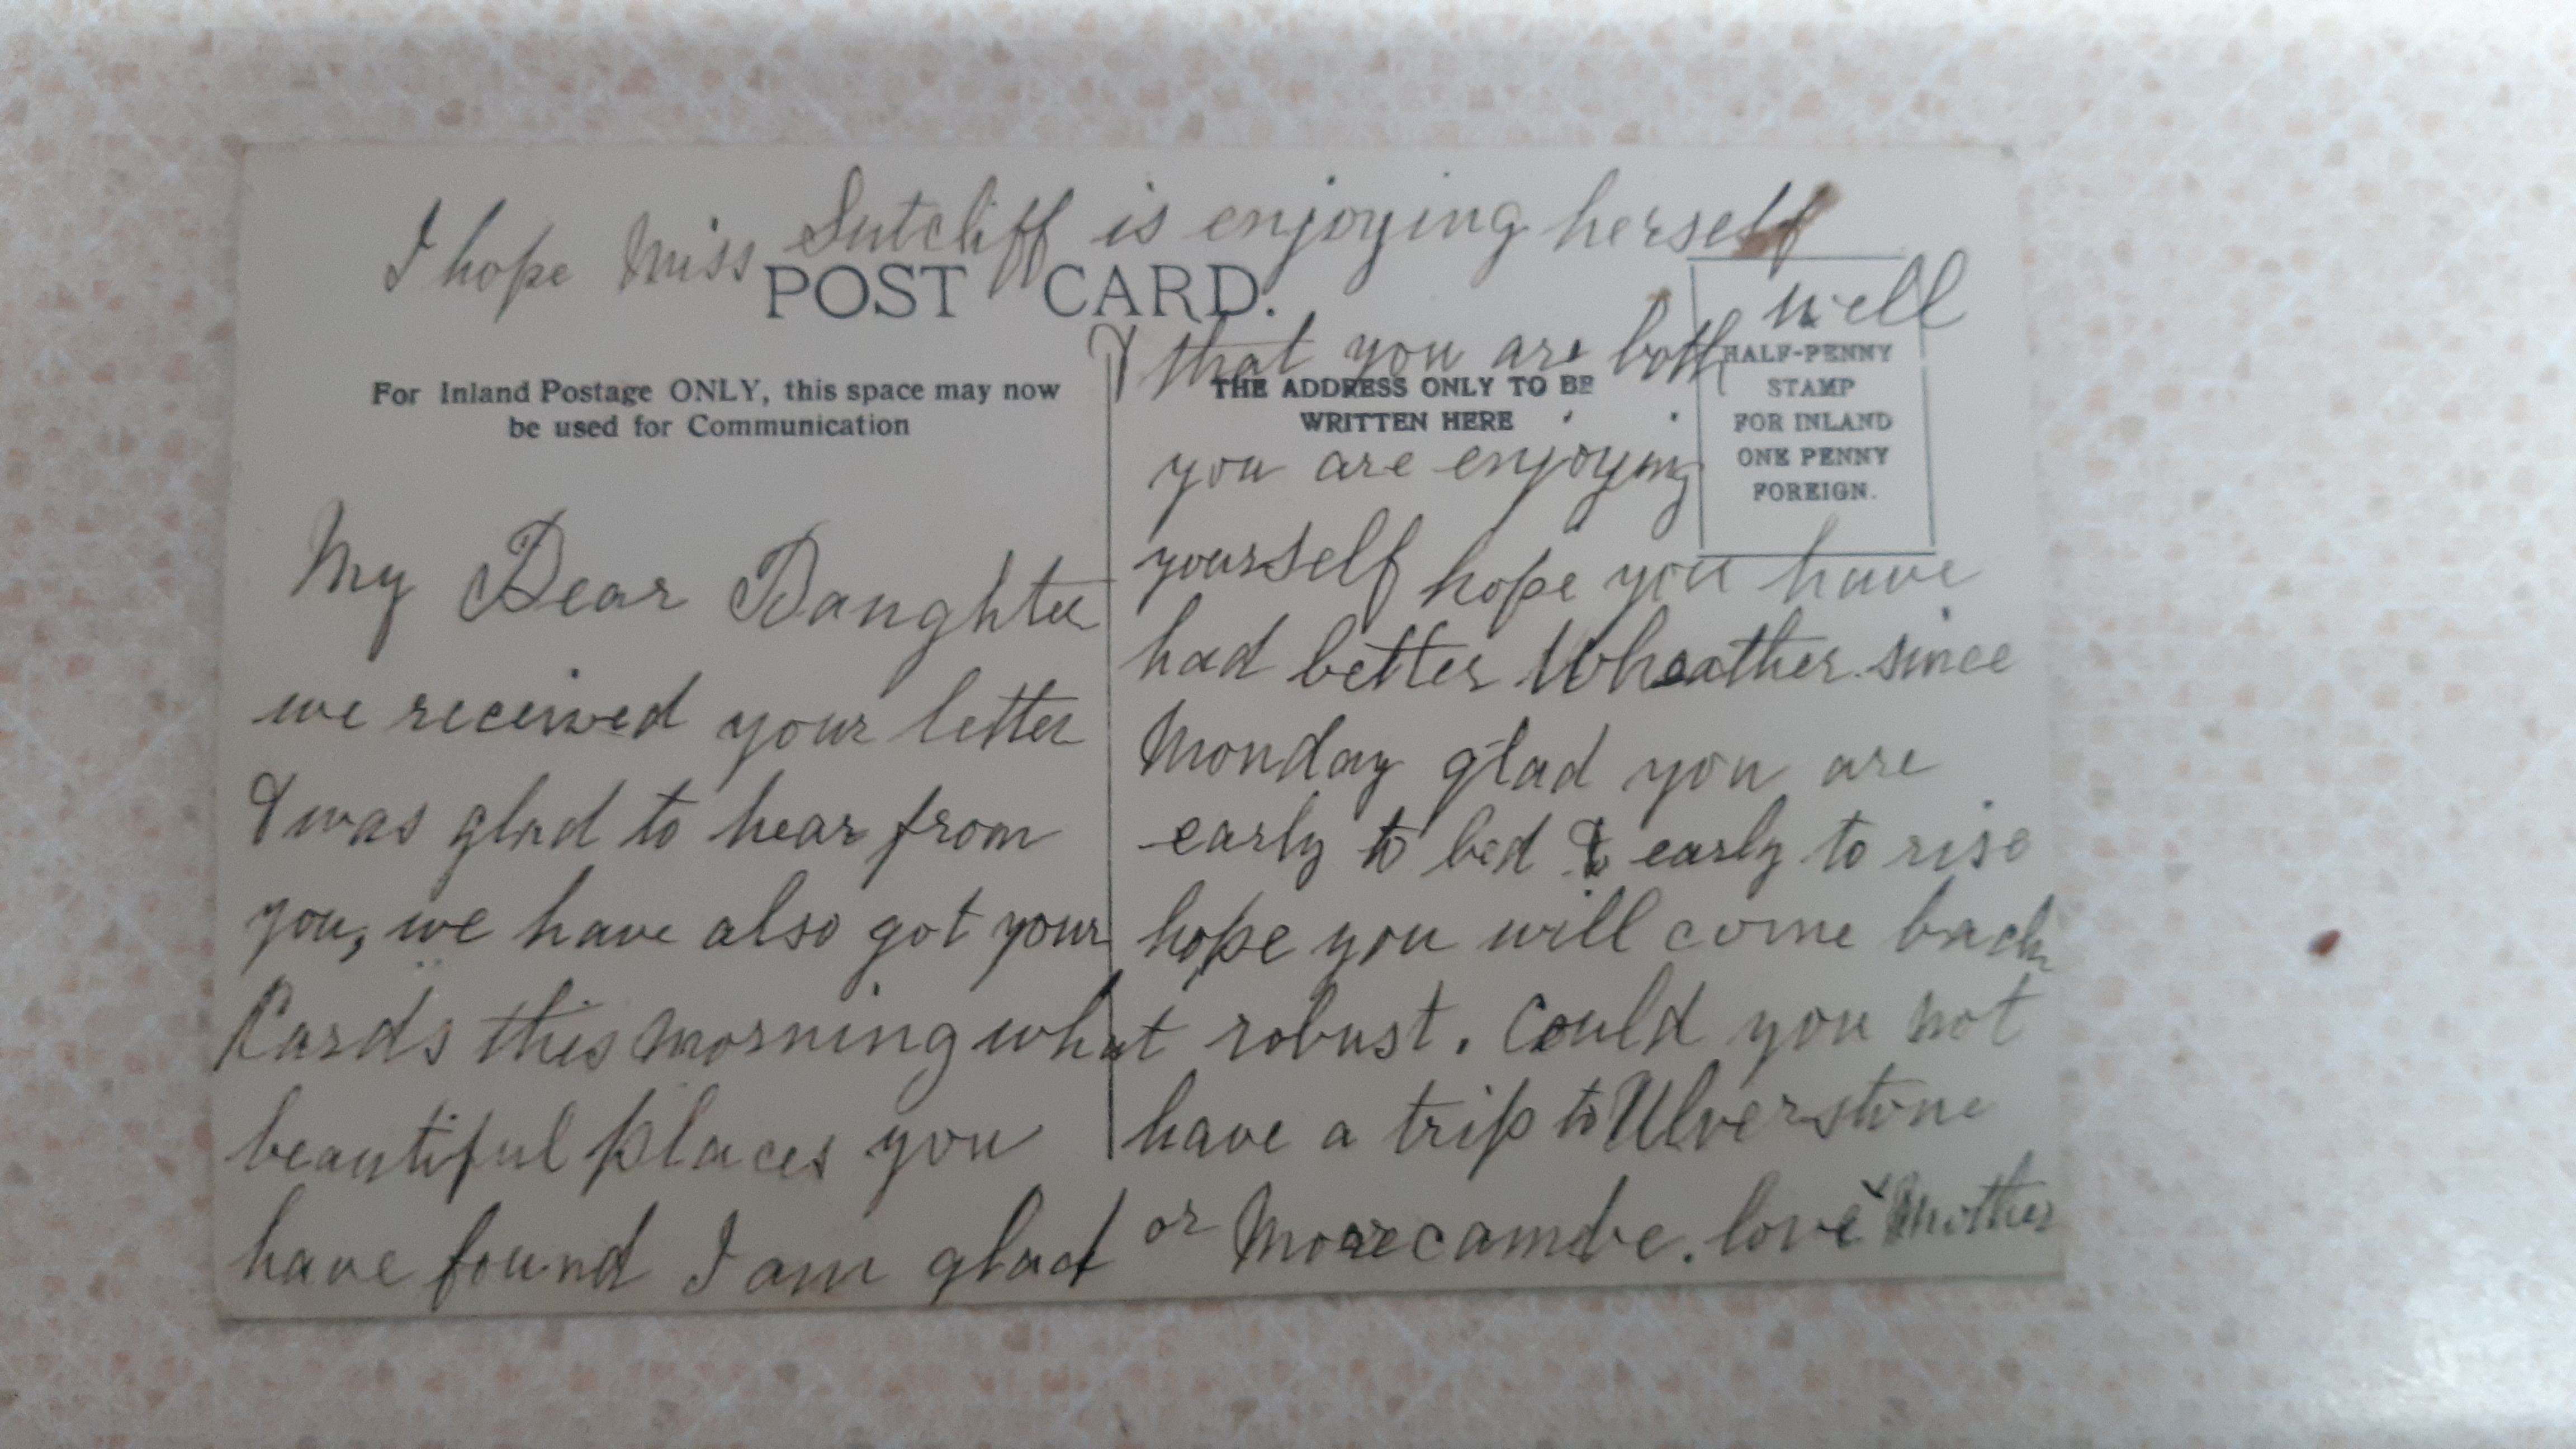 I hope Miss Sutcliff is enjoying herself
well
& that you are both
POST CARD.
For Inland Postage ONLY, this space may now
be used for Communication
THE ADDRESS ONLY TO BE
WRITTEN HERE
HALF-PENNY
STAMP
FOR INLAND
ONE PENNY
FOREIGN.
My Dear Daughter
we received your letter
& was glad to hear from
you, we have also got your
Cards this morning what
beautiful places you
have found I am glad
you are enjoying
yourself hope you have
had better Wheather since
Monday glad you are
early to bed & early to rise
hope you will come back
robust. Could you not
have a trip to Ulverstone
or Morecambe. love Mother